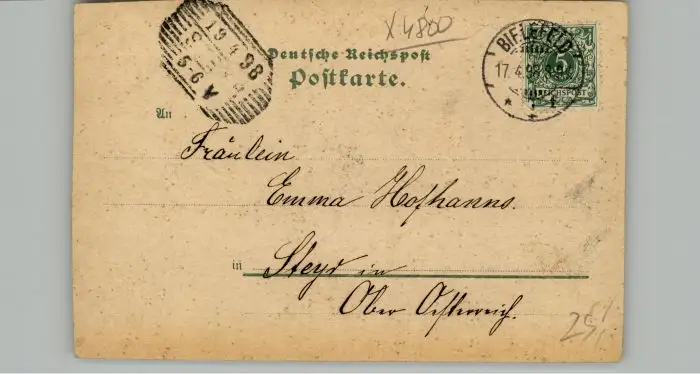 X 4800
Deutsche Reichspost
Postkarte.
BIELEFELD
17.4.98
5
REICHSPOST
19.4.98
5-6 A
An
Fräulein
Emma Hofhanns.
in Steyr in
Ober Oesterreich.
25